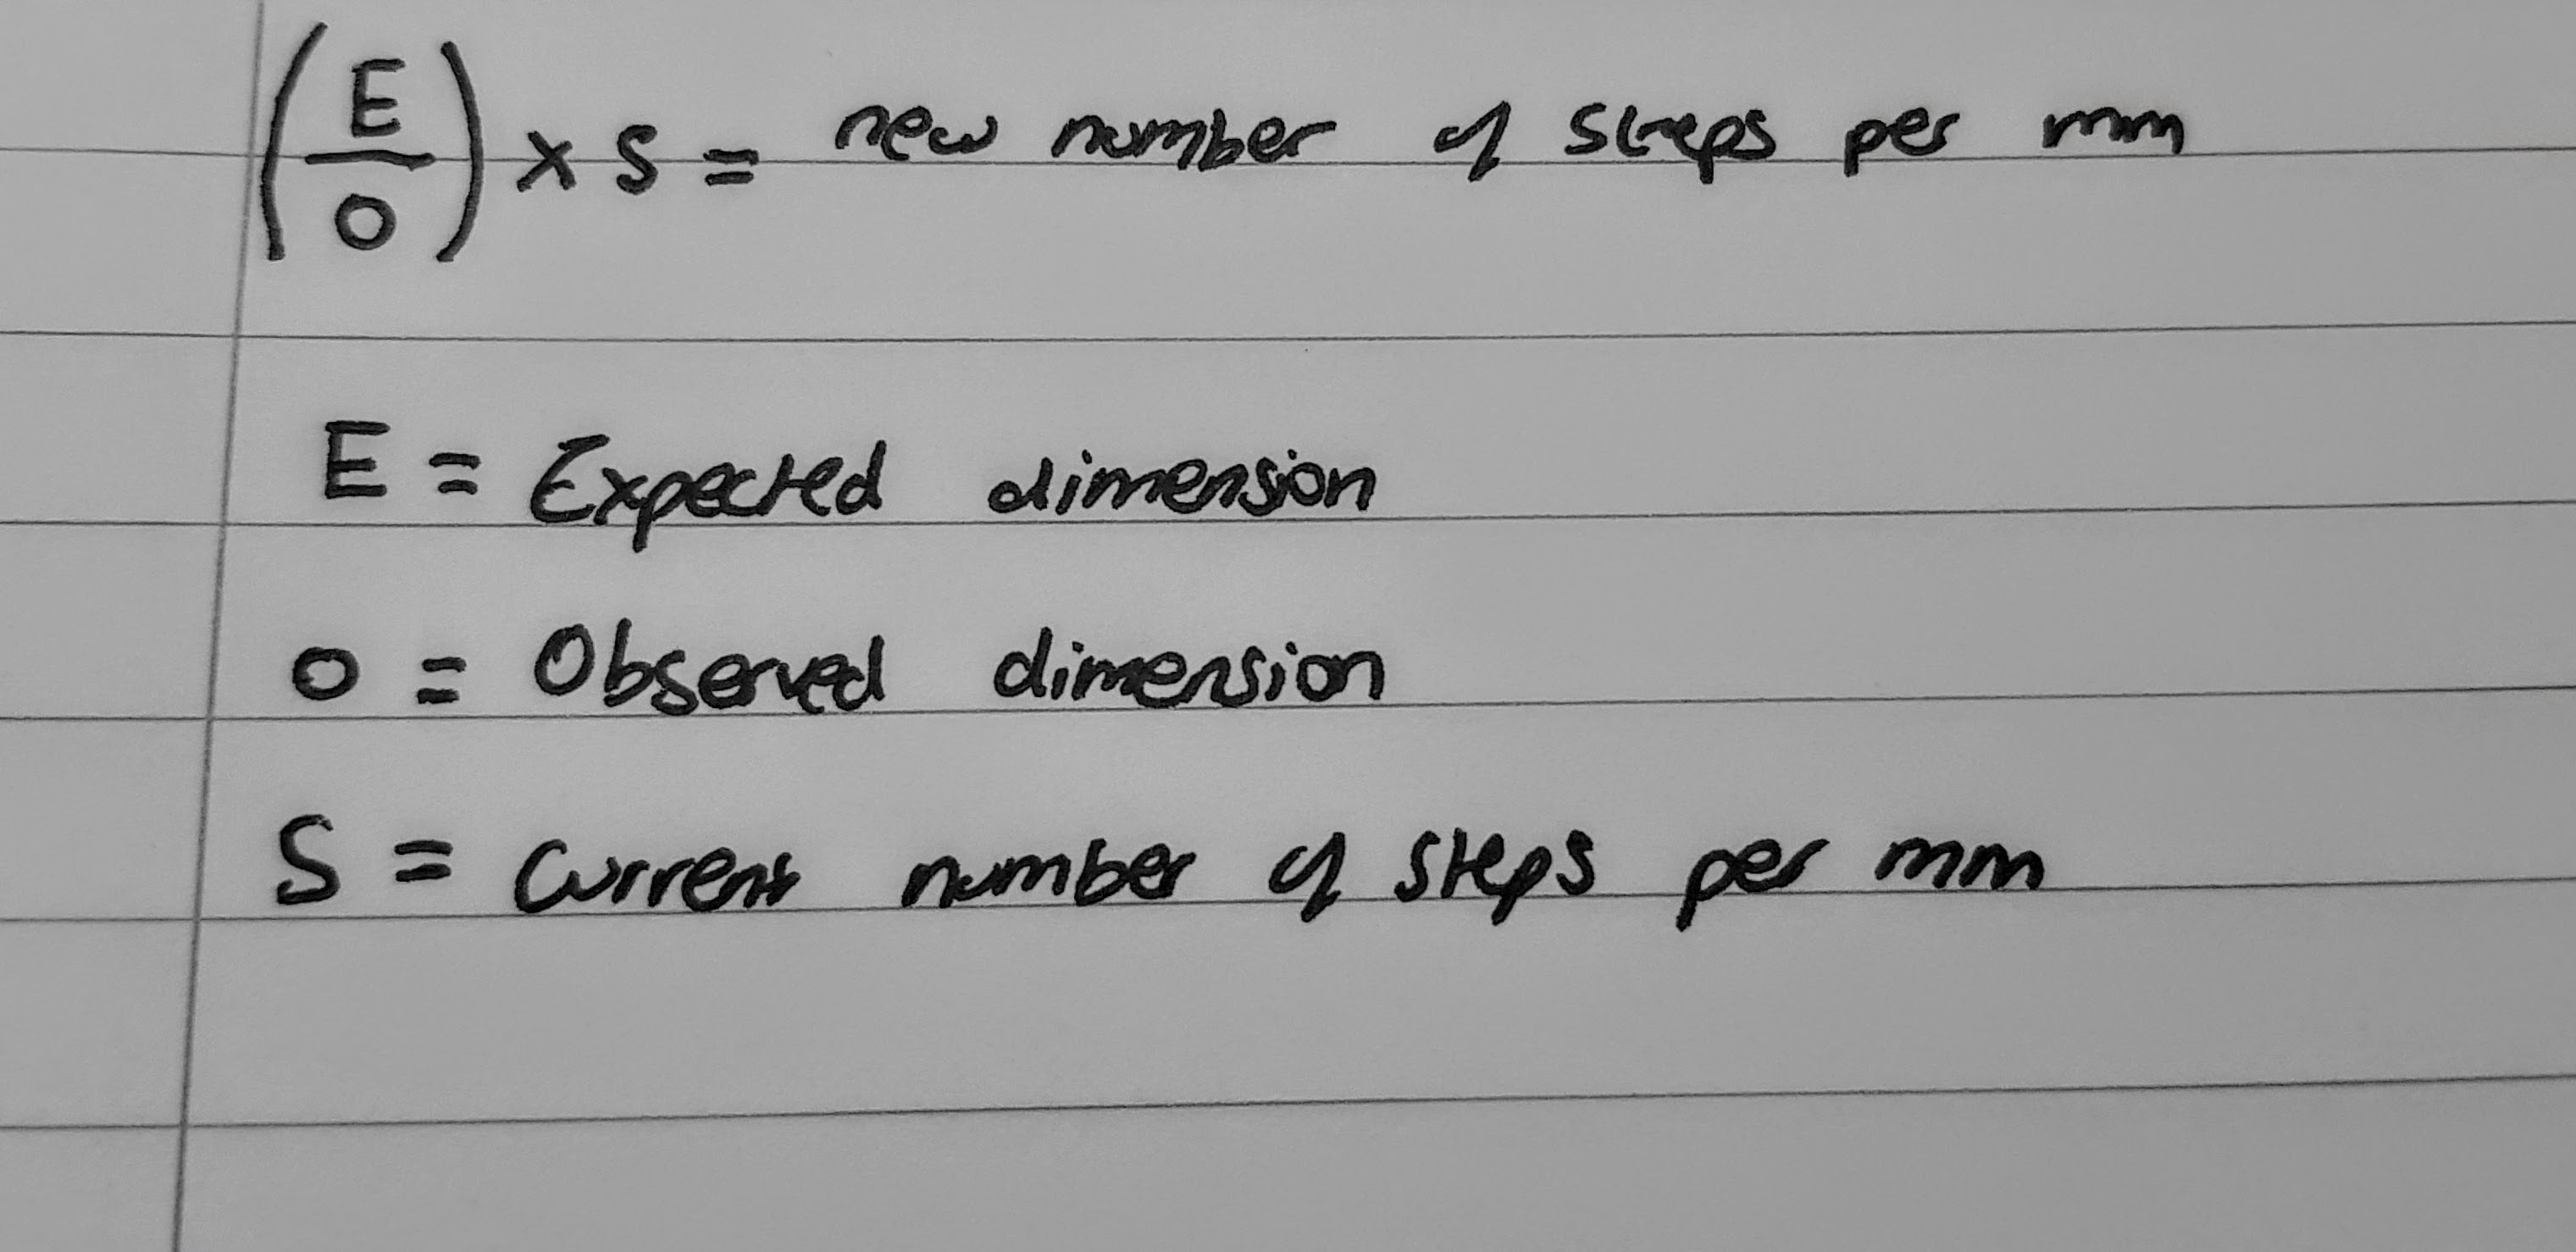 (E/O) × S = new number of steps per mm
E = Expected dimension
O = Observed dimension
S = Current number of steps per mm